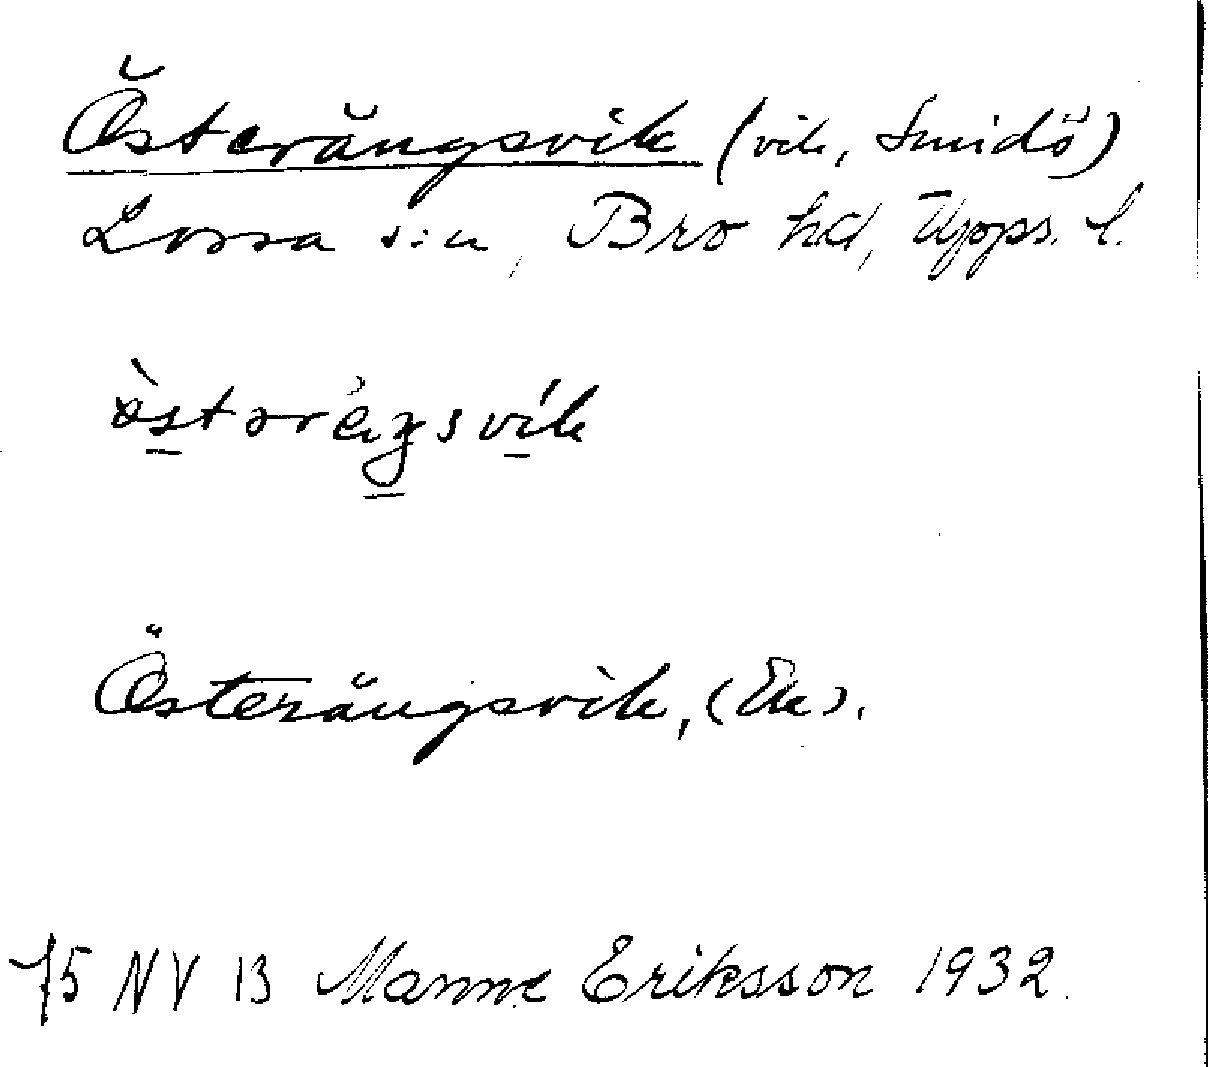 Österängsvik (vik, Smidö)
Lossa s:n, Bro hd, Upps. l.
Österängsvik, (Ek).
75 NV 13 Manne Eriksson 1932